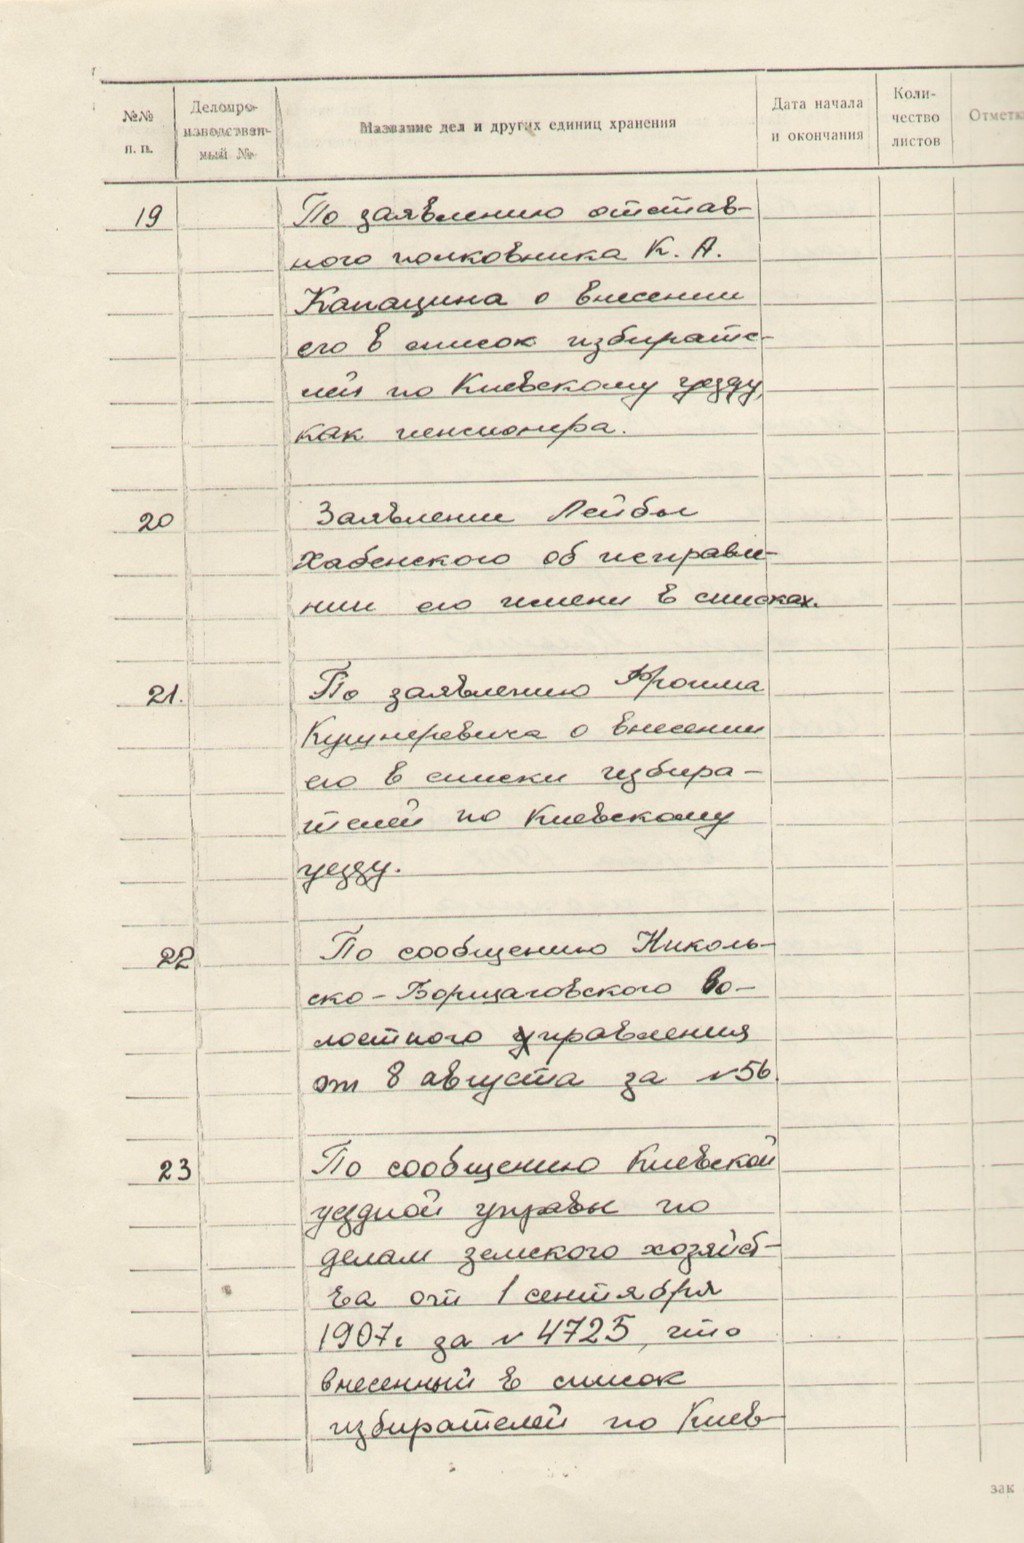 №№ п. п.
Делопро-
изводствен-
ный №
Название дел и других единиц хранения
Дата начала
и окончания
Коли-
чество
листов
Отметк
19
По заявлению отстав-
ного полковника К. А.
Капацина о внесении
его в список избирате-
лей по Киевскому уезду,
как пенсионера.
20
Заявлении Лейбы
Хабенского об исправле-
нии его имени в списках.
21.
По заявлению Фроима
Кушнеревича о внесении
его в списки избира-
телей по Киевскому
уезду.
22
По сообщению Николь-
ско-Борщаговского во-
лостного управления
от 8 августа за № 56.
23
По сообщению Киевской
уездной управы по
делам земского хозяйст-
ва от 1 сентября
1907г за № 4725, что
внесенный в список
избирателей по Киев-
зак